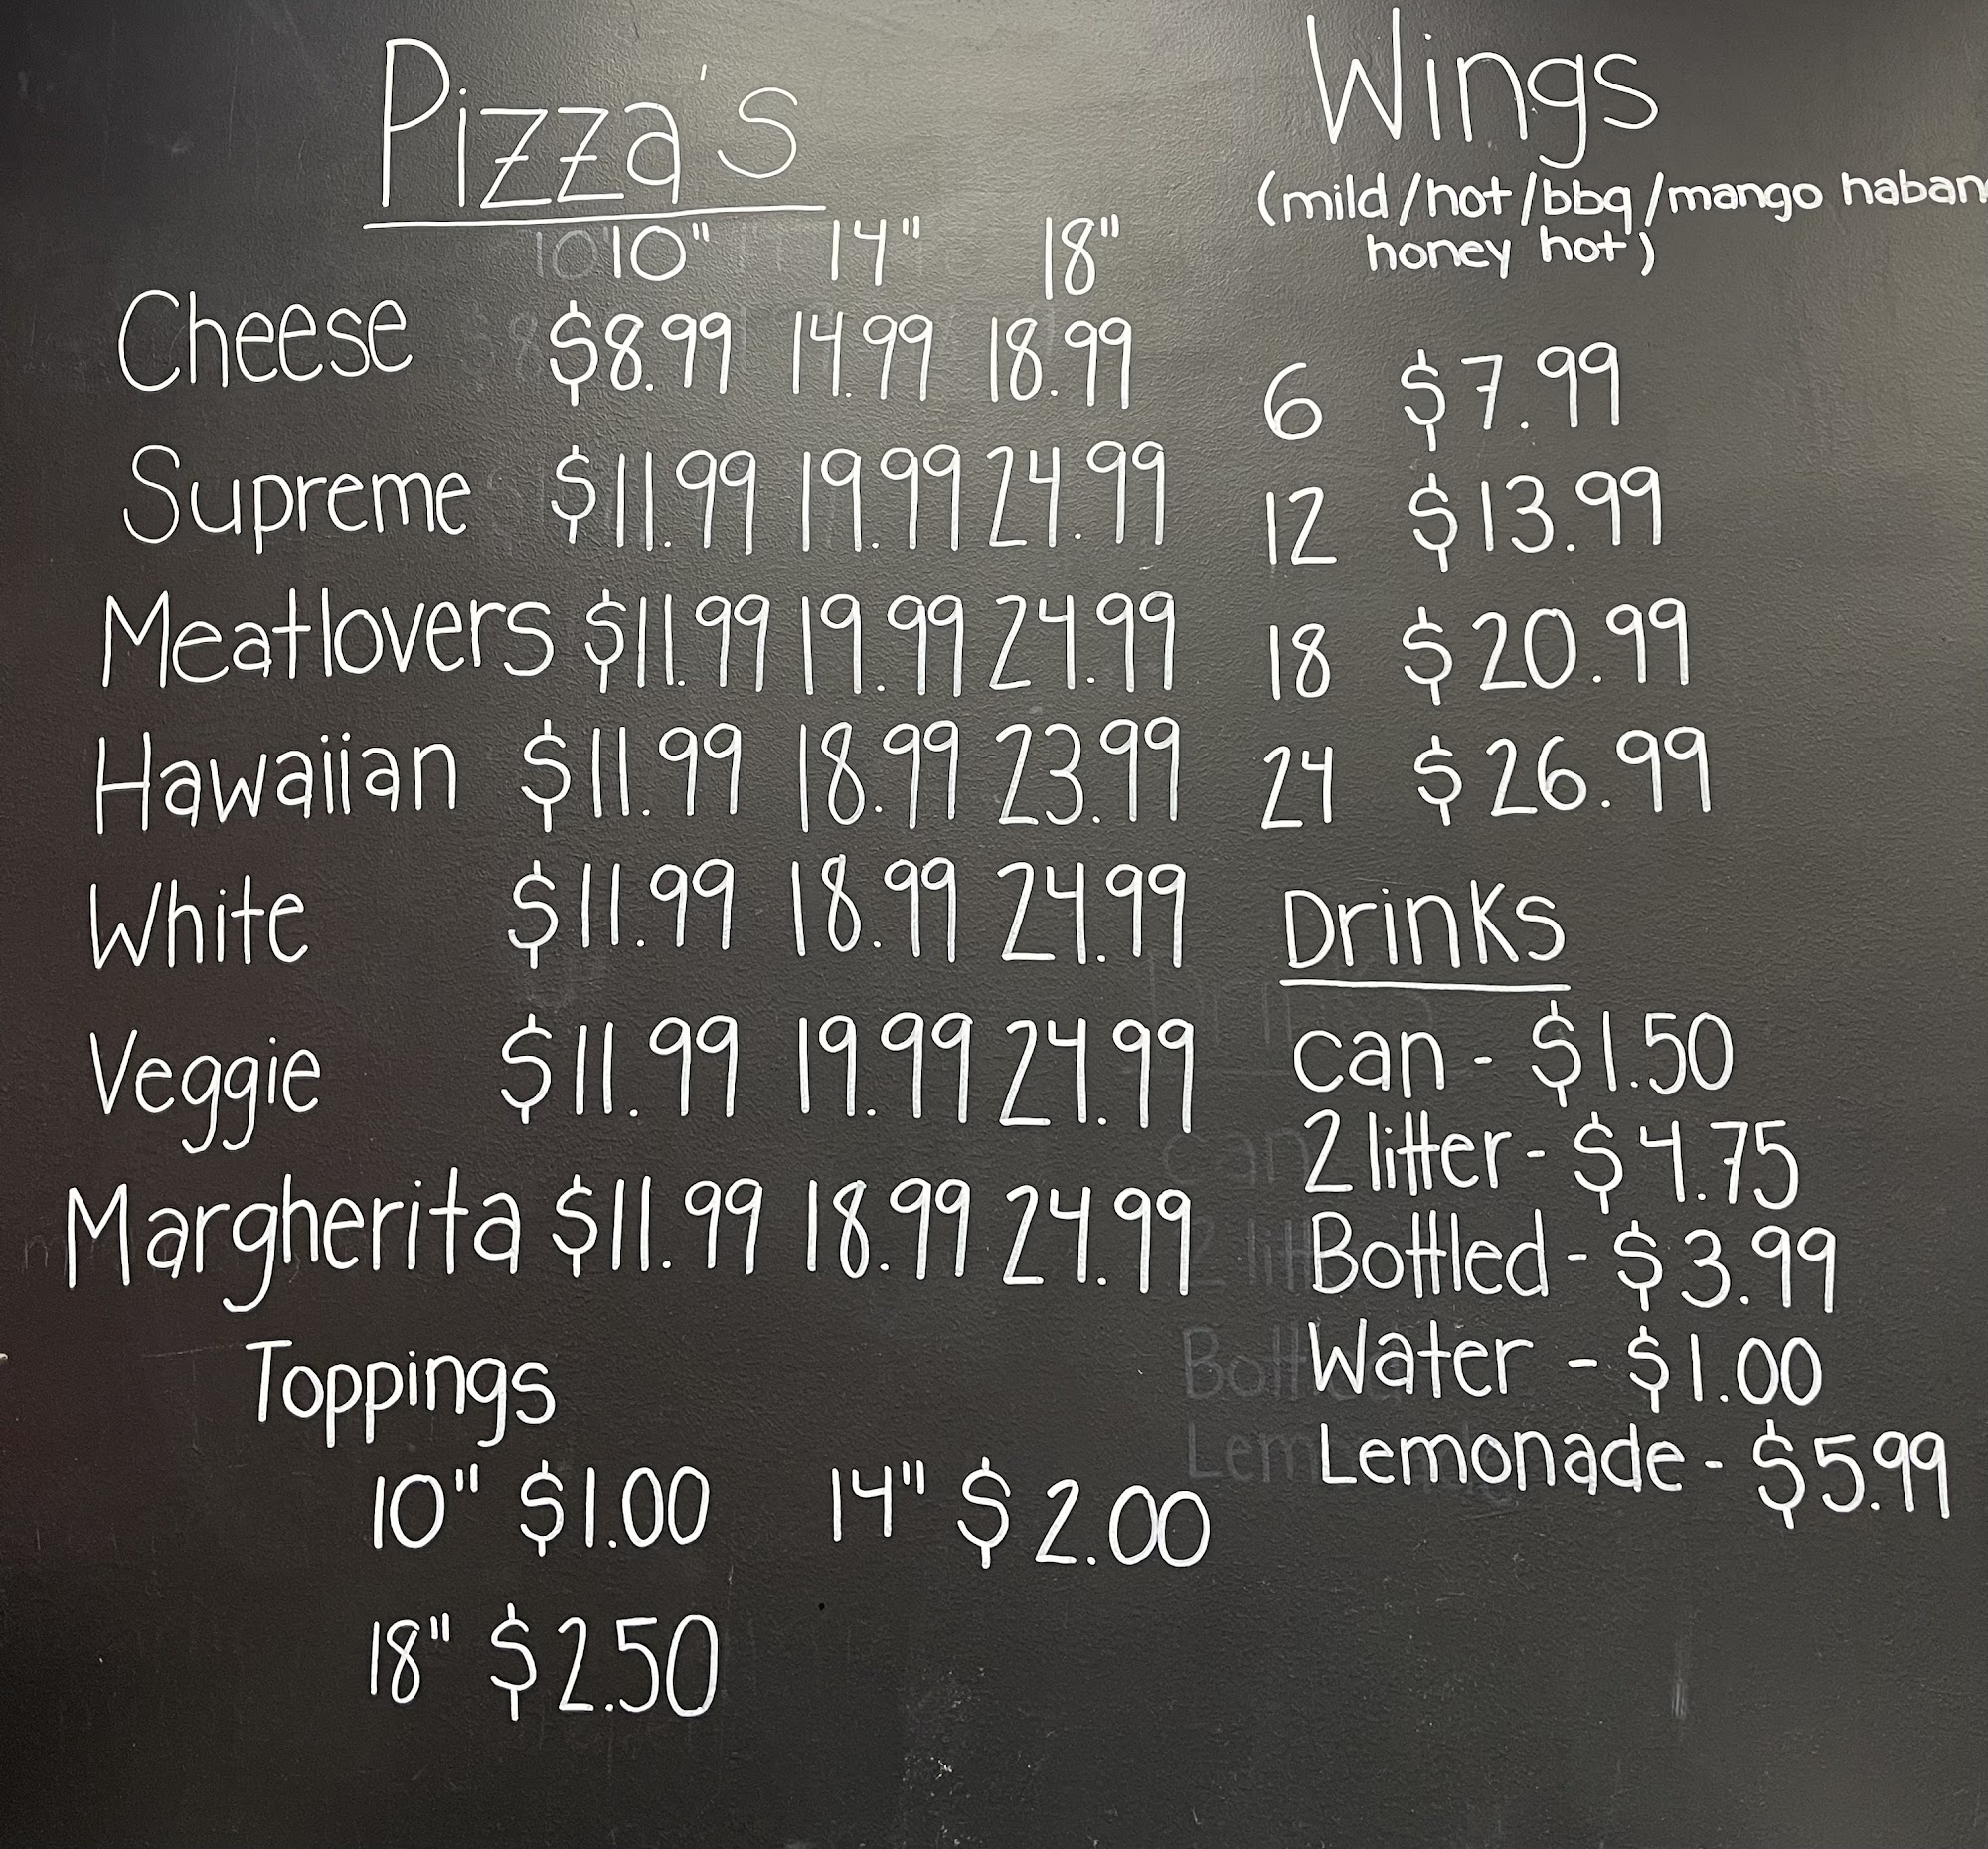 Pizza's
10" 14" 18"
Cheese $8.99 14.99 18.99
Supreme $11.99 19.99 24.99
Meatlovers $11.99 19.99 24.99
Hawaiian $11.99 18.99 23.99
White $11.99 18.99 24.99
Veggie $11.99 19.99 24.99
Margherita $11.99 18.99 24.99
Toppings
10" $1.00 14" $2.00
18" $2.50
Wings
(mild/hot/bbq/mango haban
honey hot)
6 $7.99
12 $13.99
18 $20.99
24 $26.99
Drinks
can - $1.50
2 litter - $4.75
Bottled - $3.99
Water - $1.00
Lemonade - $5.99